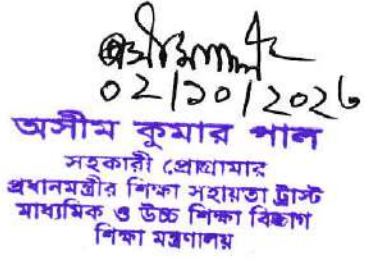 ০২/১০/২০২৬
অসীম কুমার পাল
সহকারী প্রোগ্রামার
প্রধানমন্ত্রীর শিক্ষা সহায়তা ট্রাস্ট
মাধ্যমিক ও উচ্চ শিক্ষা বিভাগ
শিক্ষা মন্ত্রণালয়